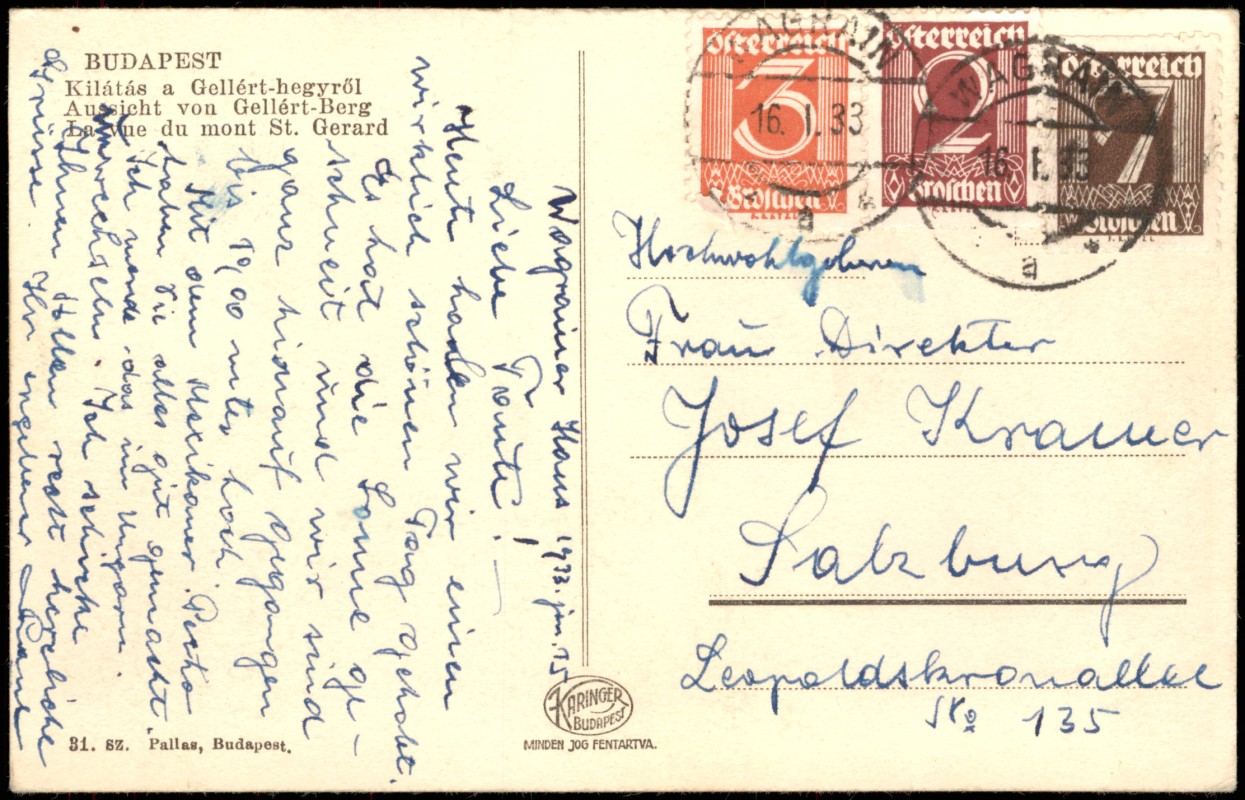 BUDAPEST
Kilátás a Gellért-hegyről
Aussicht von Gellért-Berg
La vue du mont St. Gerard
Wagrainer Haus 1933. jan. 15
Liebe Tante!
Heute haben wir einen
wirklich schönen Tag gehabt.
Es hat die Sonne ge-
schneit und wir sind
ganz hinauf gegangen
bis 1900 mter hoch
Mit dem Mexikaner
haben Sie alles gut gemacht.
Ich werde das in Ungarn
wechseln. Ich schicke
Ihnen Allen recht herzliche
Grüsse Ihr
31. sz. Pallas, Budapest.
KARINGER
BUDAPEST
MINDEN JOG FENTARTVA.
Österreich
3
3 Groschen
Österreich
2
Groschen
Österreich
7
Groschen
WAGRAIN
16. I. 33
a
WAGRAIN
16. I. 33
a
Hochwohlgeboren
Frau Direktor
Josef Kramer
Salzburg
Leopoldskronallee
No 135